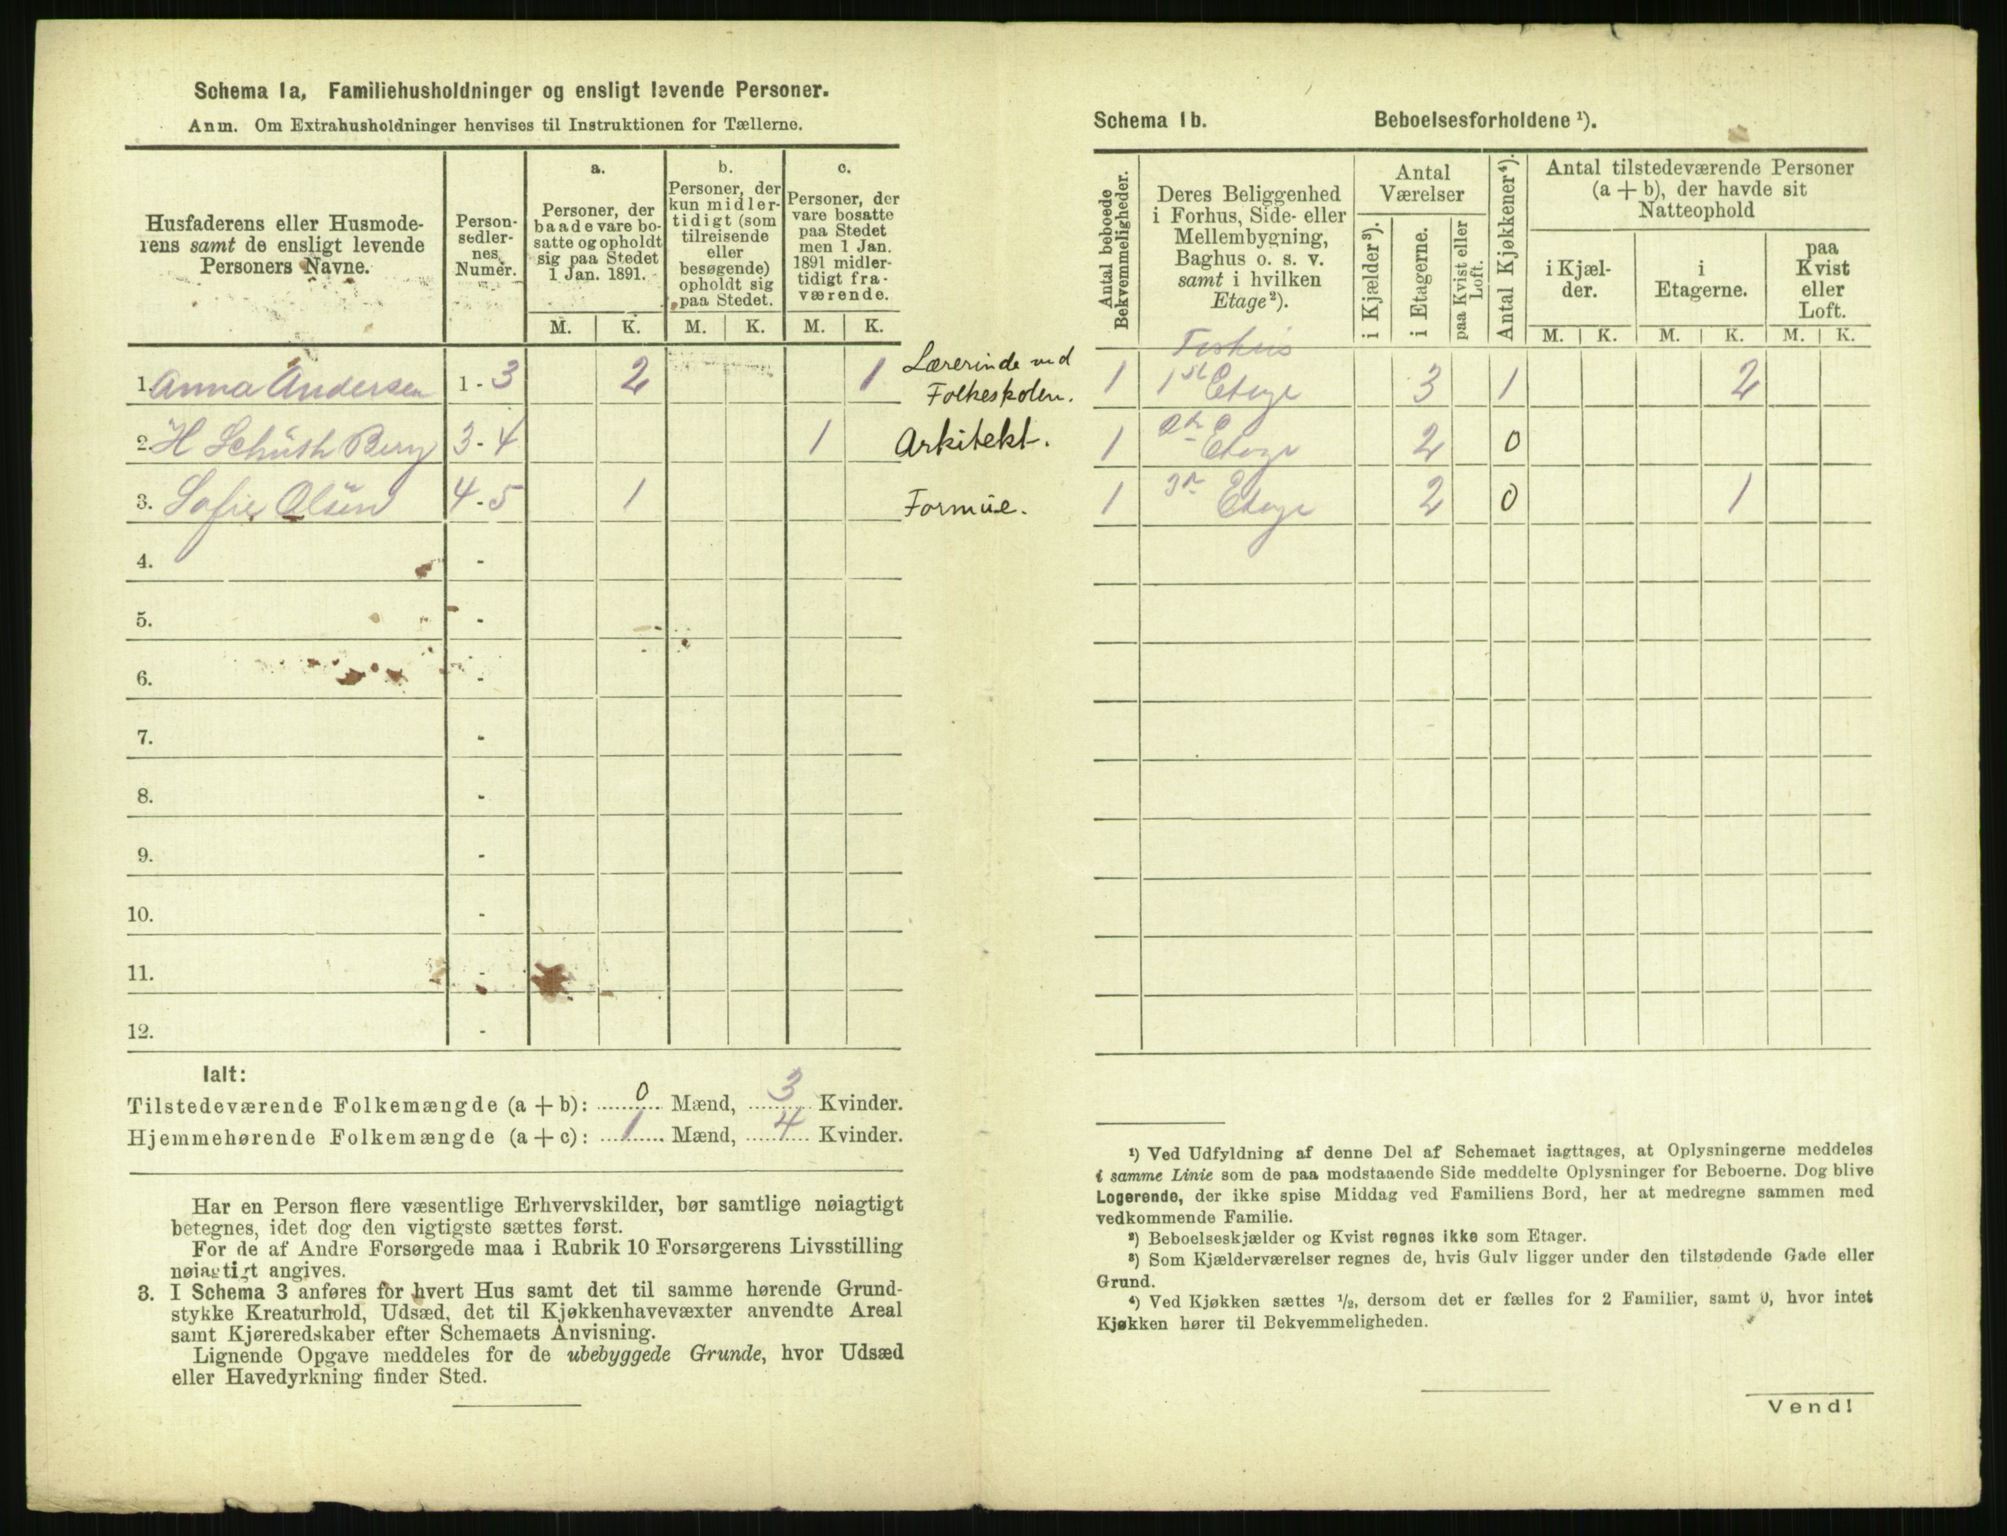 Schema 1a, Familiehusholdninger og ensligt levende Personer.
Anm. Om Extrahusholdninger henvises til Instruktionen for Tællerne.
Husfaderens eller Husmode-
rens samt de ensligt levende
Personers Navne.
Person-
sedler-
nes
Numer.
a.
Personer, der
baade vare bo-
satte og opholdt
sig paa Stedet
1 Jan. 1891.
b.
Personer, der
kun midler-
tidigt (som
tilreisende
eller
besøgende)
opholdt sig
paa Stedet.
c.
Personer, der
vare bosatte
paa Stedet
men 1 Jan.
1891 midler-
tidigt fra-
værende.
M. K. M. K. M. K.
1. Anna Andersen 1-3 2 1 Lærerinde ved
Folkeskolen.
2. H Schüth Berg 3-4 1 Arkitekt.
3. Sofie Olsen 4-5 1 Formue.
4. -
5. -
6. -
7. -
8. -
9. -
10. -
11. -
12. -
Ialt:
Tilstedeværende Folkemængde (a + b): 0 Mænd, 3 Kvinder.
Hjemmehørende Folkemængde (a + c): 1 Mænd, 4 Kvinder.
Har en Person flere væsentlige Erhvervskilder, bør samtlige nøiagtigt
betegnes, idet dog den vigtigste sættes først.
For de af Andre Forsørgede maa i Rubrik 10 Forsørgerens Livsstilling
nøiagtigt angives.
3. I Schema 3 anføres for hvert Hus samt det til samme hørende Grund-
stykke Kreaturhold, Udsæd, det til Kjøkkenhavevæxter anvendte Areal
samt Kjøreredskaber efter Schemaets Anvisning.
Lignende Opgave meddeles for de ubebyggede Grunde, hvor Udsæd
eller Havedyrkning finder Sted.
Schema 1b. Beboelsesforholdene ¹).
Antal beboede
Bekvemmeligheder.
Deres Beliggenhed
i Forhus, Side- eller
Mellembygning,
Baghus o. s. v.
samt i hvilken
Etage ²).
Antal
Værelser
i Kjælder ³).
i Etagerne.
paa Kvist eller
Loft.
Antal Kjøkkener ⁴).
Antal tilstedeværende Personer
(a + b), der havde sit
Natteophold
i Kjæl-
der.
i
Etagerne.
paa
Kvist
eller
Loft.
M. K. M. K. M. K.
1 1ste Etage 3 1 2
1 Etage 2 0
1 Etage 2 0 1
¹) Ved Udfyldning af denne Del af Schemaet iagttages, at Oplysningerne meddeles
i samme Linie som de paa modstaaende Side meddelte Oplysninger for Beboerne. Dog blive
Logerende, der ikke spise Middag ved Familiens Bord, her at medregne sammen med
vedkommende Familie.
²) Beboelseskjælder og Kvist regnes ikke som Etager.
³) Som Kjælderværelser regnes de, hvis Gulv ligger under den tilstødende Gade eller
Grund.
⁴) Ved Kjøkken sættes ½, dersom det er fælles for 2 Familier, samt 0, hvor intet
Kjøkken hører til Bekvemmeligheden.
Vend!